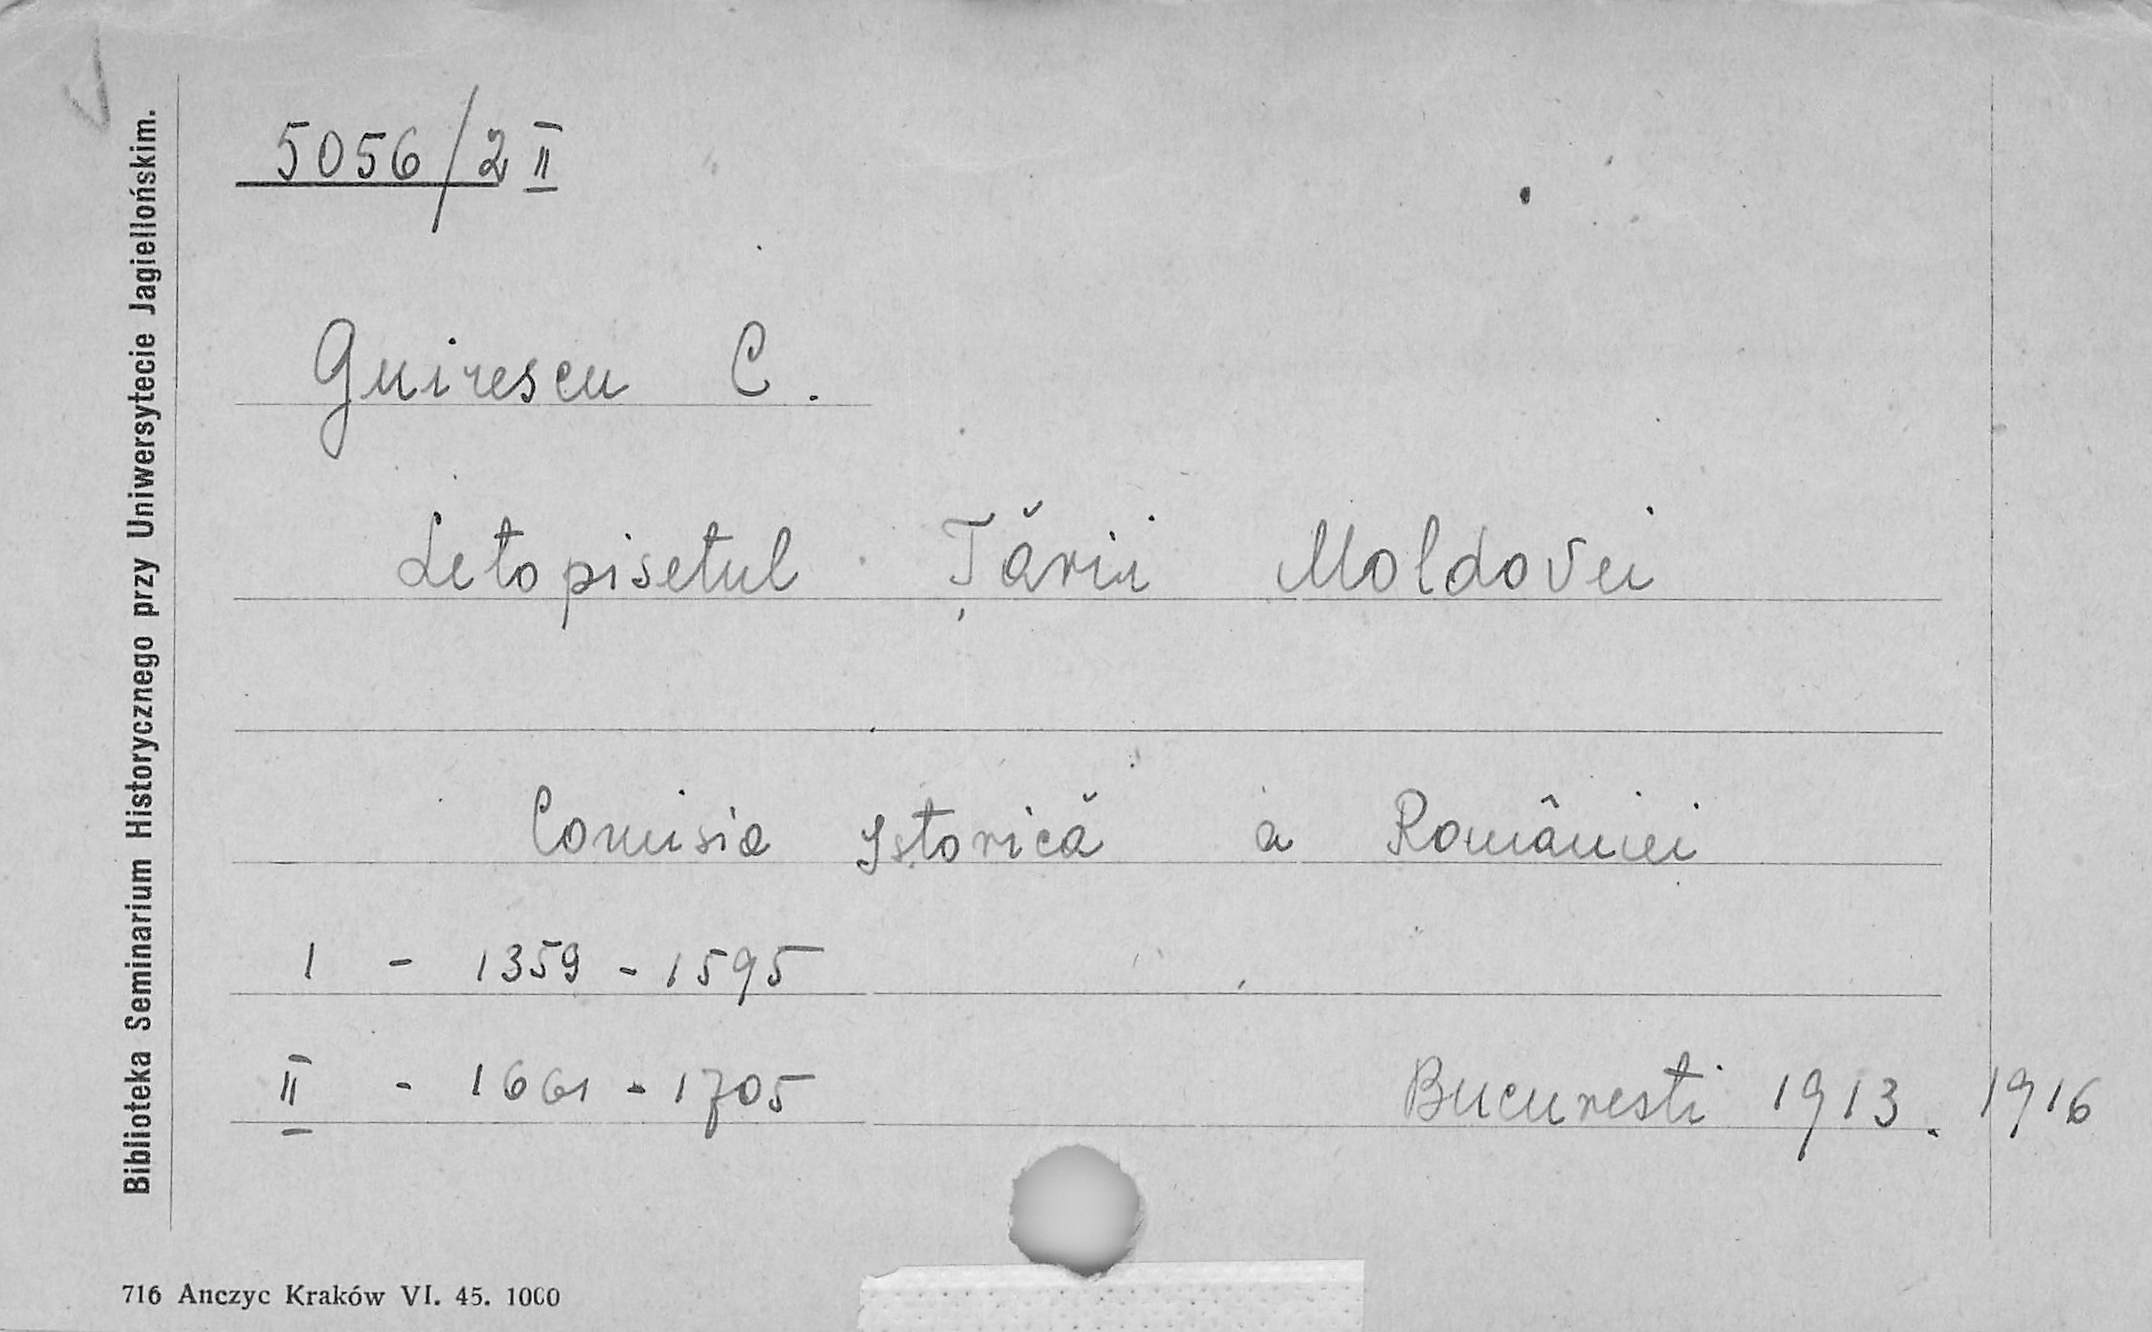 Biblioteka Seminarium Historycznego przy Uniwersytecie Jagiellońskim.
5056/2 II
Guirescu C.
Letopisetul Țării Moldovei
Comisia Istorică a României
I - 1359 - 1595
II - 1661 - 1705
Bucuresti 1913. 1916
716 Anczyc Kraków VI. 45. 1000